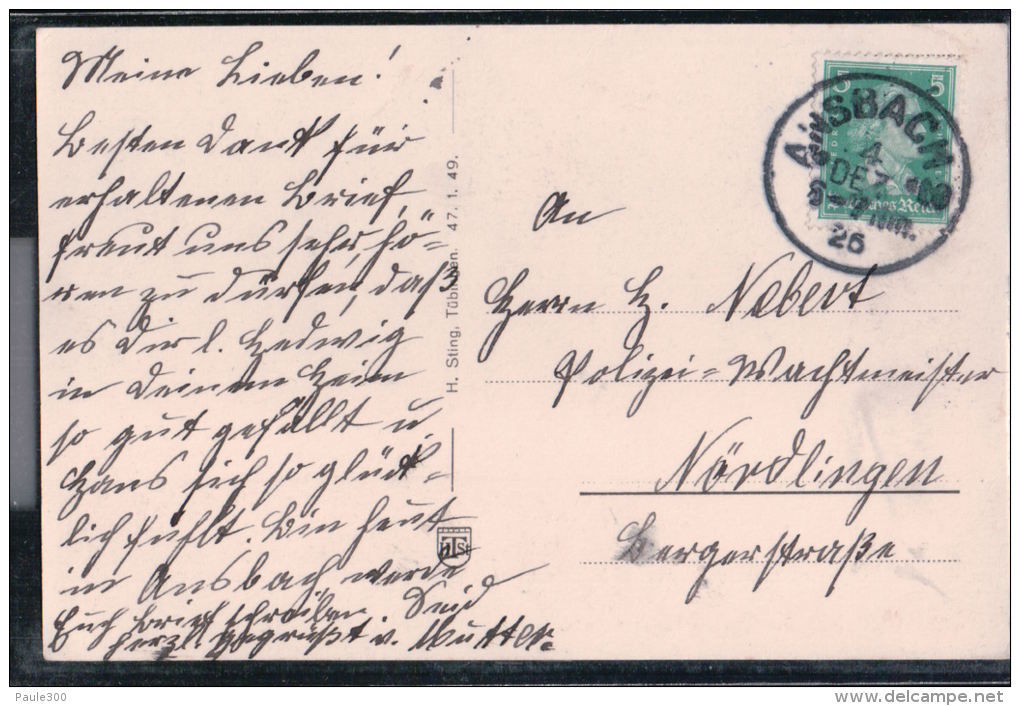 Meine Lieben!
Besten Dank für
erhaltenen Brief,
freut uns sehr, hö-
ren zu dürfen, daß
es Dir l. Hedwig
in Deinem Heim
so gut gefällt u.
Hans sich so glück-
lich fühlt. Bin heut
in Ansbach, werde
Euch Brief schreiben. Seid
herzl. gegrüßt v. Mutter.
H. Sting, Tübingen. 47. 1. 49.
HTSt
5 5
ANSBACH
4
DEZ
6-7 Nm.
26
Deutsches Reich
An
Herrn H. Nebert
Polizei-Wachtmeister
Nördlingen
Bergerstraße
Paule300
www.delcampe.net